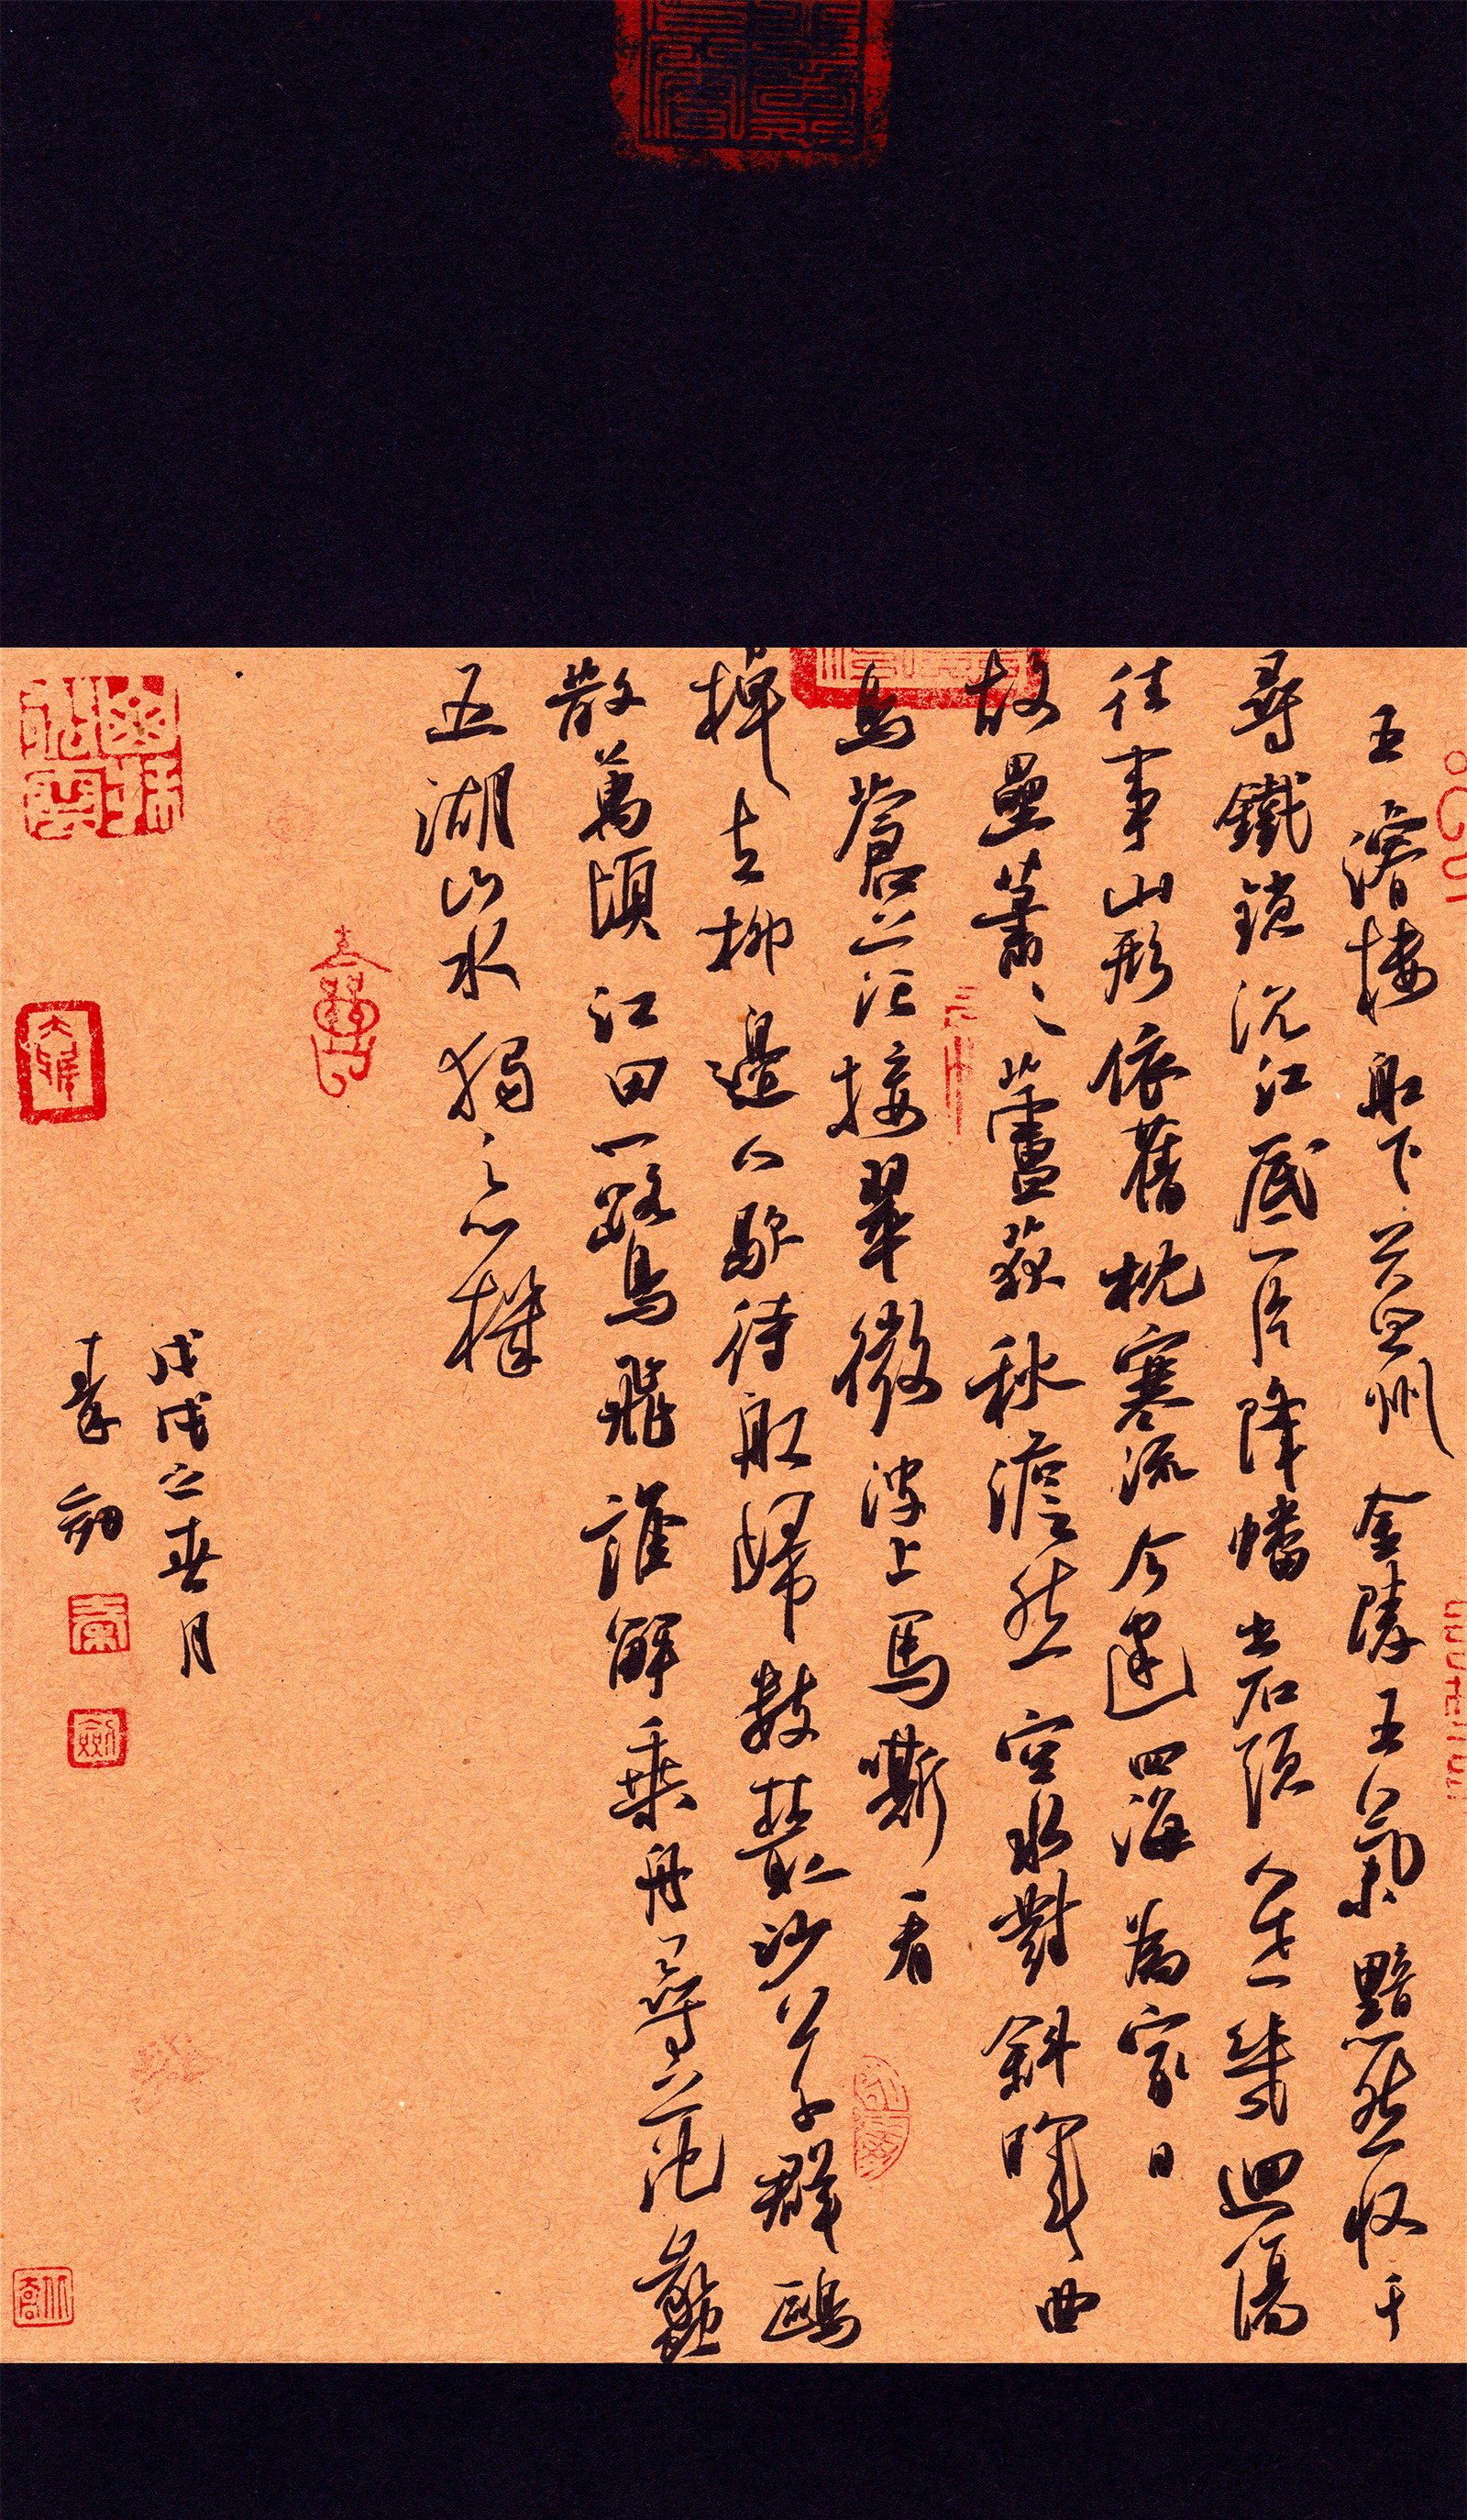 王濬樓船下益州金陵王氣黯然收千
尋鐵鎖沉江底一片降幡出石頭人世幾迴傷
往事山形依舊枕寒流今逢四海為家日
故壘蕭々蘆荻秋澹然空水對斜暉曲
島蒼茫接翠微波上馬嘶看
棹去柳邊人歇待船歸數叢沙草群鷗
散萬頃江田一鷺飛誰解乘舟尋范蠡
五湖山水獨忘機
戊戌之春月
秦劒
秦
劍